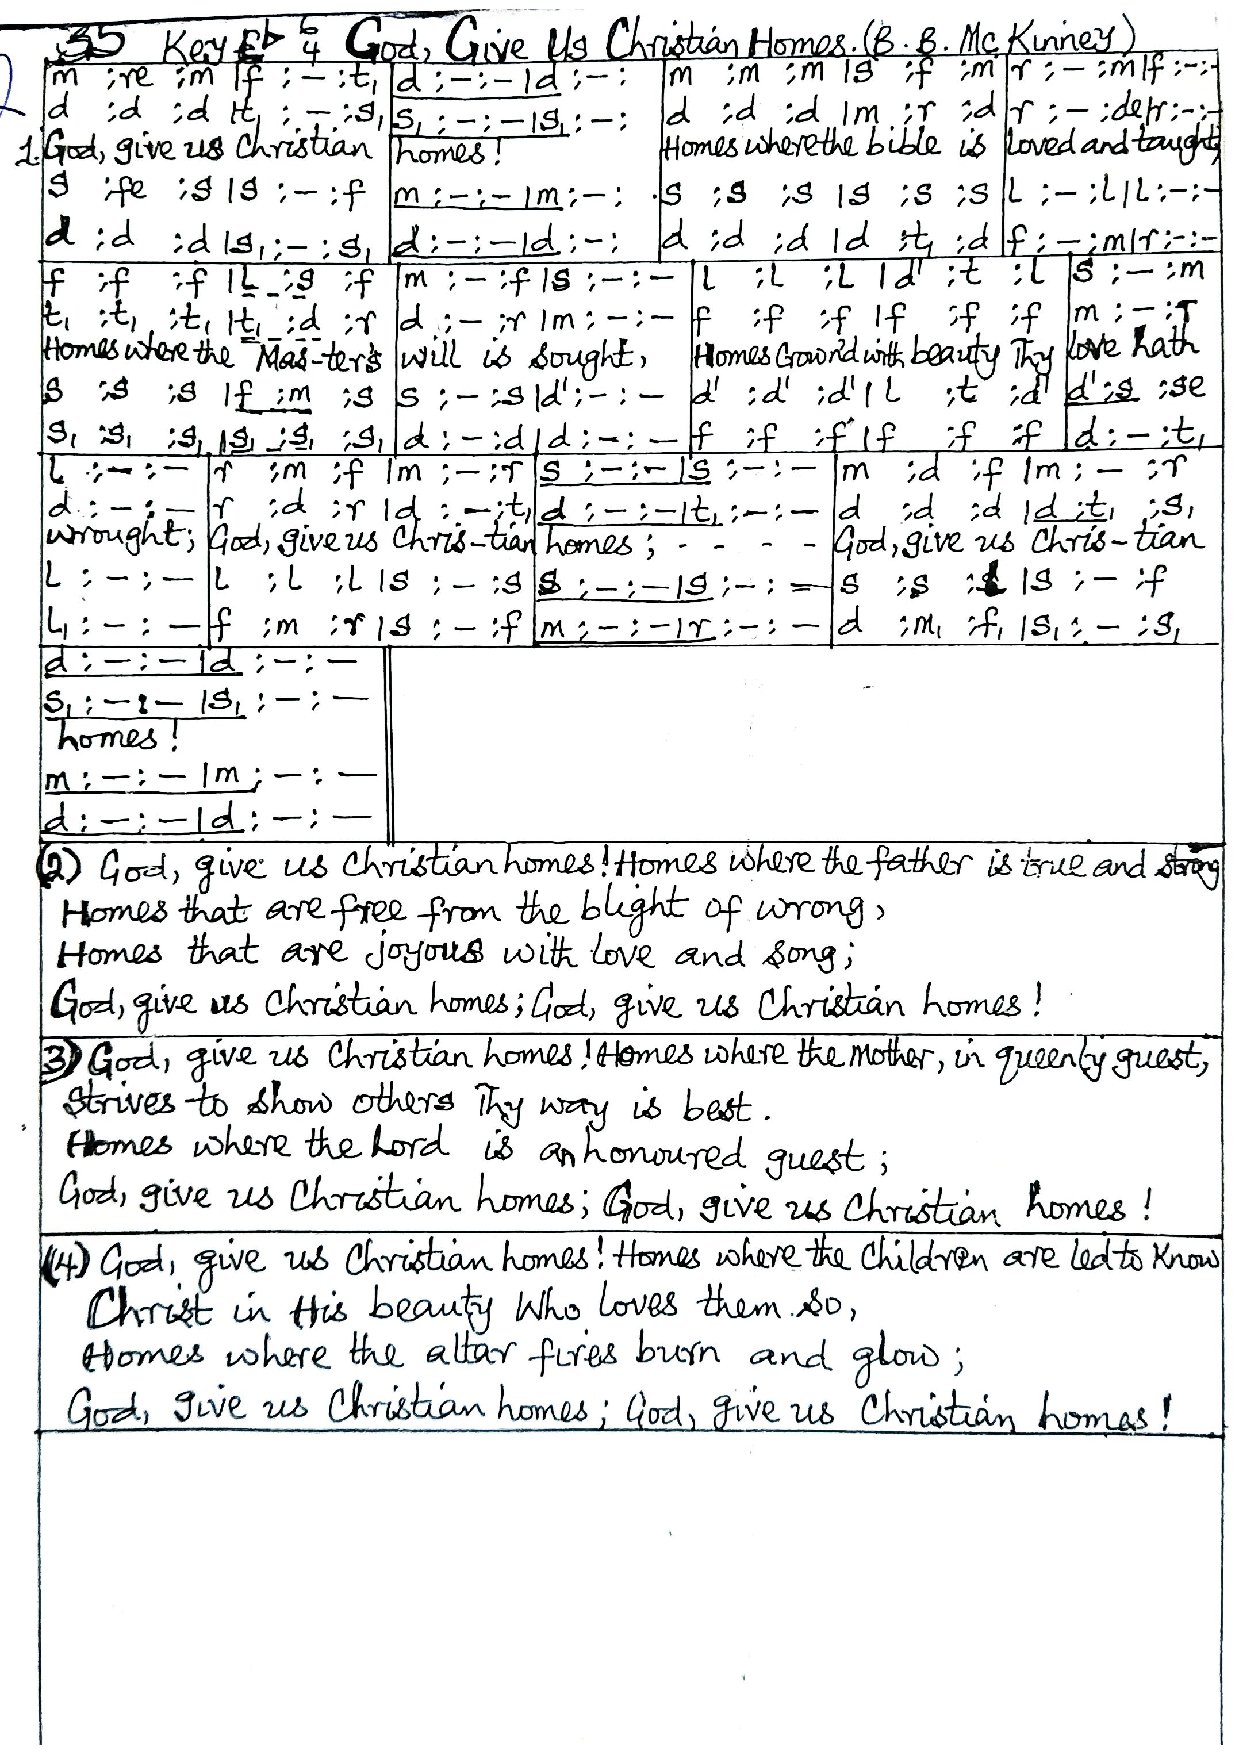 35 Key E♭ 6/4 God, Give Us Christian Homes. (B. B. Mc Kinney)
m :re :m |f :- :t₁ | d :- :- |d :- : | m :m :m |s :f :m | r :- :m |f :- :-
d :d :d |t₁ :- :s₁ | s₁ :- :- |s₁ :- : | d :d :d |m :r :d | r :- :de |r :- :-
1. God, give us Christian homes! Homes where the bible is loved and taught,
s :fe :s |s :- :f | m :- :- |m :- : | s :s :s |s :s :s | L :- :L |L :- :-
d :d :d |s₁ :- :s₁ | d :- :- |d :- : | d :d :d |d :t₁ :d | f :- :m |r :- :-
f :f :f |L :s :f | m :- :f |s :- :- | L :L :L |d' :t :L | s :- :m
t₁ :t₁ :t₁ |t₁ :d :r | d :- :r |m :- :- | f :f :f |f :f :f | m :- :r
Homes where the Mas-ter's will is sought, Homes Crown'd with beauty Thy love hath
s :s :s |f :m :s | s :- :s |d' :- :- | d' :d' :d' |L :t :d' | d' :s :se
s₁ :s₁ :s₁ |s₁ :s₁ :s₁ | d :- :d |d :- :- | f :f :f |f :f :f | d :- :t₁
L :- :- | r :m :f |m :- :r | s :- :- |s :- :- | m :d :f |m :- :r
d :- :- | r :d :r |d :- :t₁ | d :- :- |t₁ :- :- | d :d :d |d :t₁ :s₁
wrought; God, give us Chris-tian homes; - - - - God, give us Chris-tian
L :- :- | L :L :L |s :- :s | s :- :- |s :- :- | s :s :L |s :- :f
L₁ :- :- | f :m :r |s :- :f | m :- :- |r :- :- | d :m₁ :f₁ |s₁ :- :s₁
d :- :- |d :- :-
s₁ :- :- |s₁ :- :-
homes!
m :- :- |m :- :-
d :- :- |d :- :-
(2) God, give us Christian homes! Homes where the father is true and strong
Homes that are free from the blight of wrong,
Homes that are joyous with love and song;
God, give us Christian homes; God, give us Christian homes!
3) God, give us Christian homes! Homes where the Mother, in queenly guest,
Strives to show others Thy way is best.
Homes where the Lord is an honoured guest;
God, give us Christian homes; God, give us Christian homes!
(4) God, give us Christian homes! Homes where the Children are led to Know
Christ in His beauty Who loves them so,
Homes where the altar fires burn and glow;
God, give us Christian homes; God, give us Christian homes!